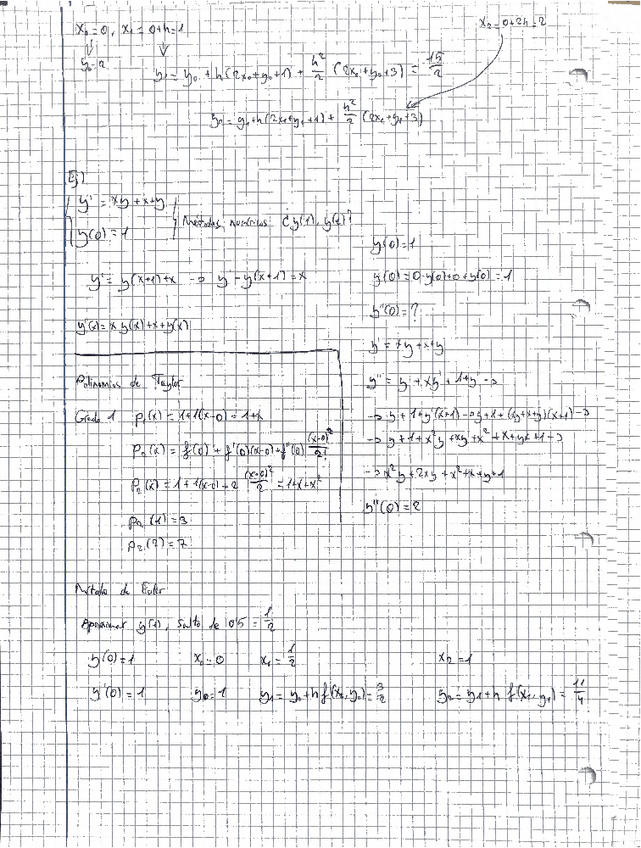 x₀=0, x₁=0+h=1
x₂=0+2h=2
y₀=2
y₁=y₀+h(2x₀+y₀+1)+h²/2(2x₀+y₀+3)=15/2
y₂=y₁+h(2x₁+y₁+1)+h²/2(2x₁+y₁+3)
Ej)
y'=xy+x+y
y(0)=1
Métodos numéricos ¿y(1), y(2)?
y'=y(x+1)+x → y'-y(x+1)=x
y'(x)=x y(x)+x+y(x)
y(0)=1
y'(0)=0·y(0)+0+y(0)=1
y''(0)=?
y'=xy+x+y
y''=y+xy'+1+y' →
→ y+1+y'(x+1) → y+1+(xy+x+y)(x+1) →
→ y+1+x²y+xy+x²+x+yx+y →
→ x²y+2xy+x²+x+y+1
y''(0)=2
Polinomios de Taylor
Grado 1 P₁(x)=1+1(x-0)=1+x
P₂(x)=f(0)+f'(0)(x-0)+f''(0)(x-0)²/2!
P₂(x)=1+1(x-0)+2(x-0)²/2=1+x+x²
P₂(1)=3
P₂(2)=7
Método de Euler
Aproximar y(1), salto de 0'5=1/2
y(0)=1 x₀=0 x₁=1/2 x₂=1
y'(0)=1 y₀=1 y₁=y₀+h f(x₀,y₀)=3/2 y₂=y₁+h f(x₁,y₁)=11/4